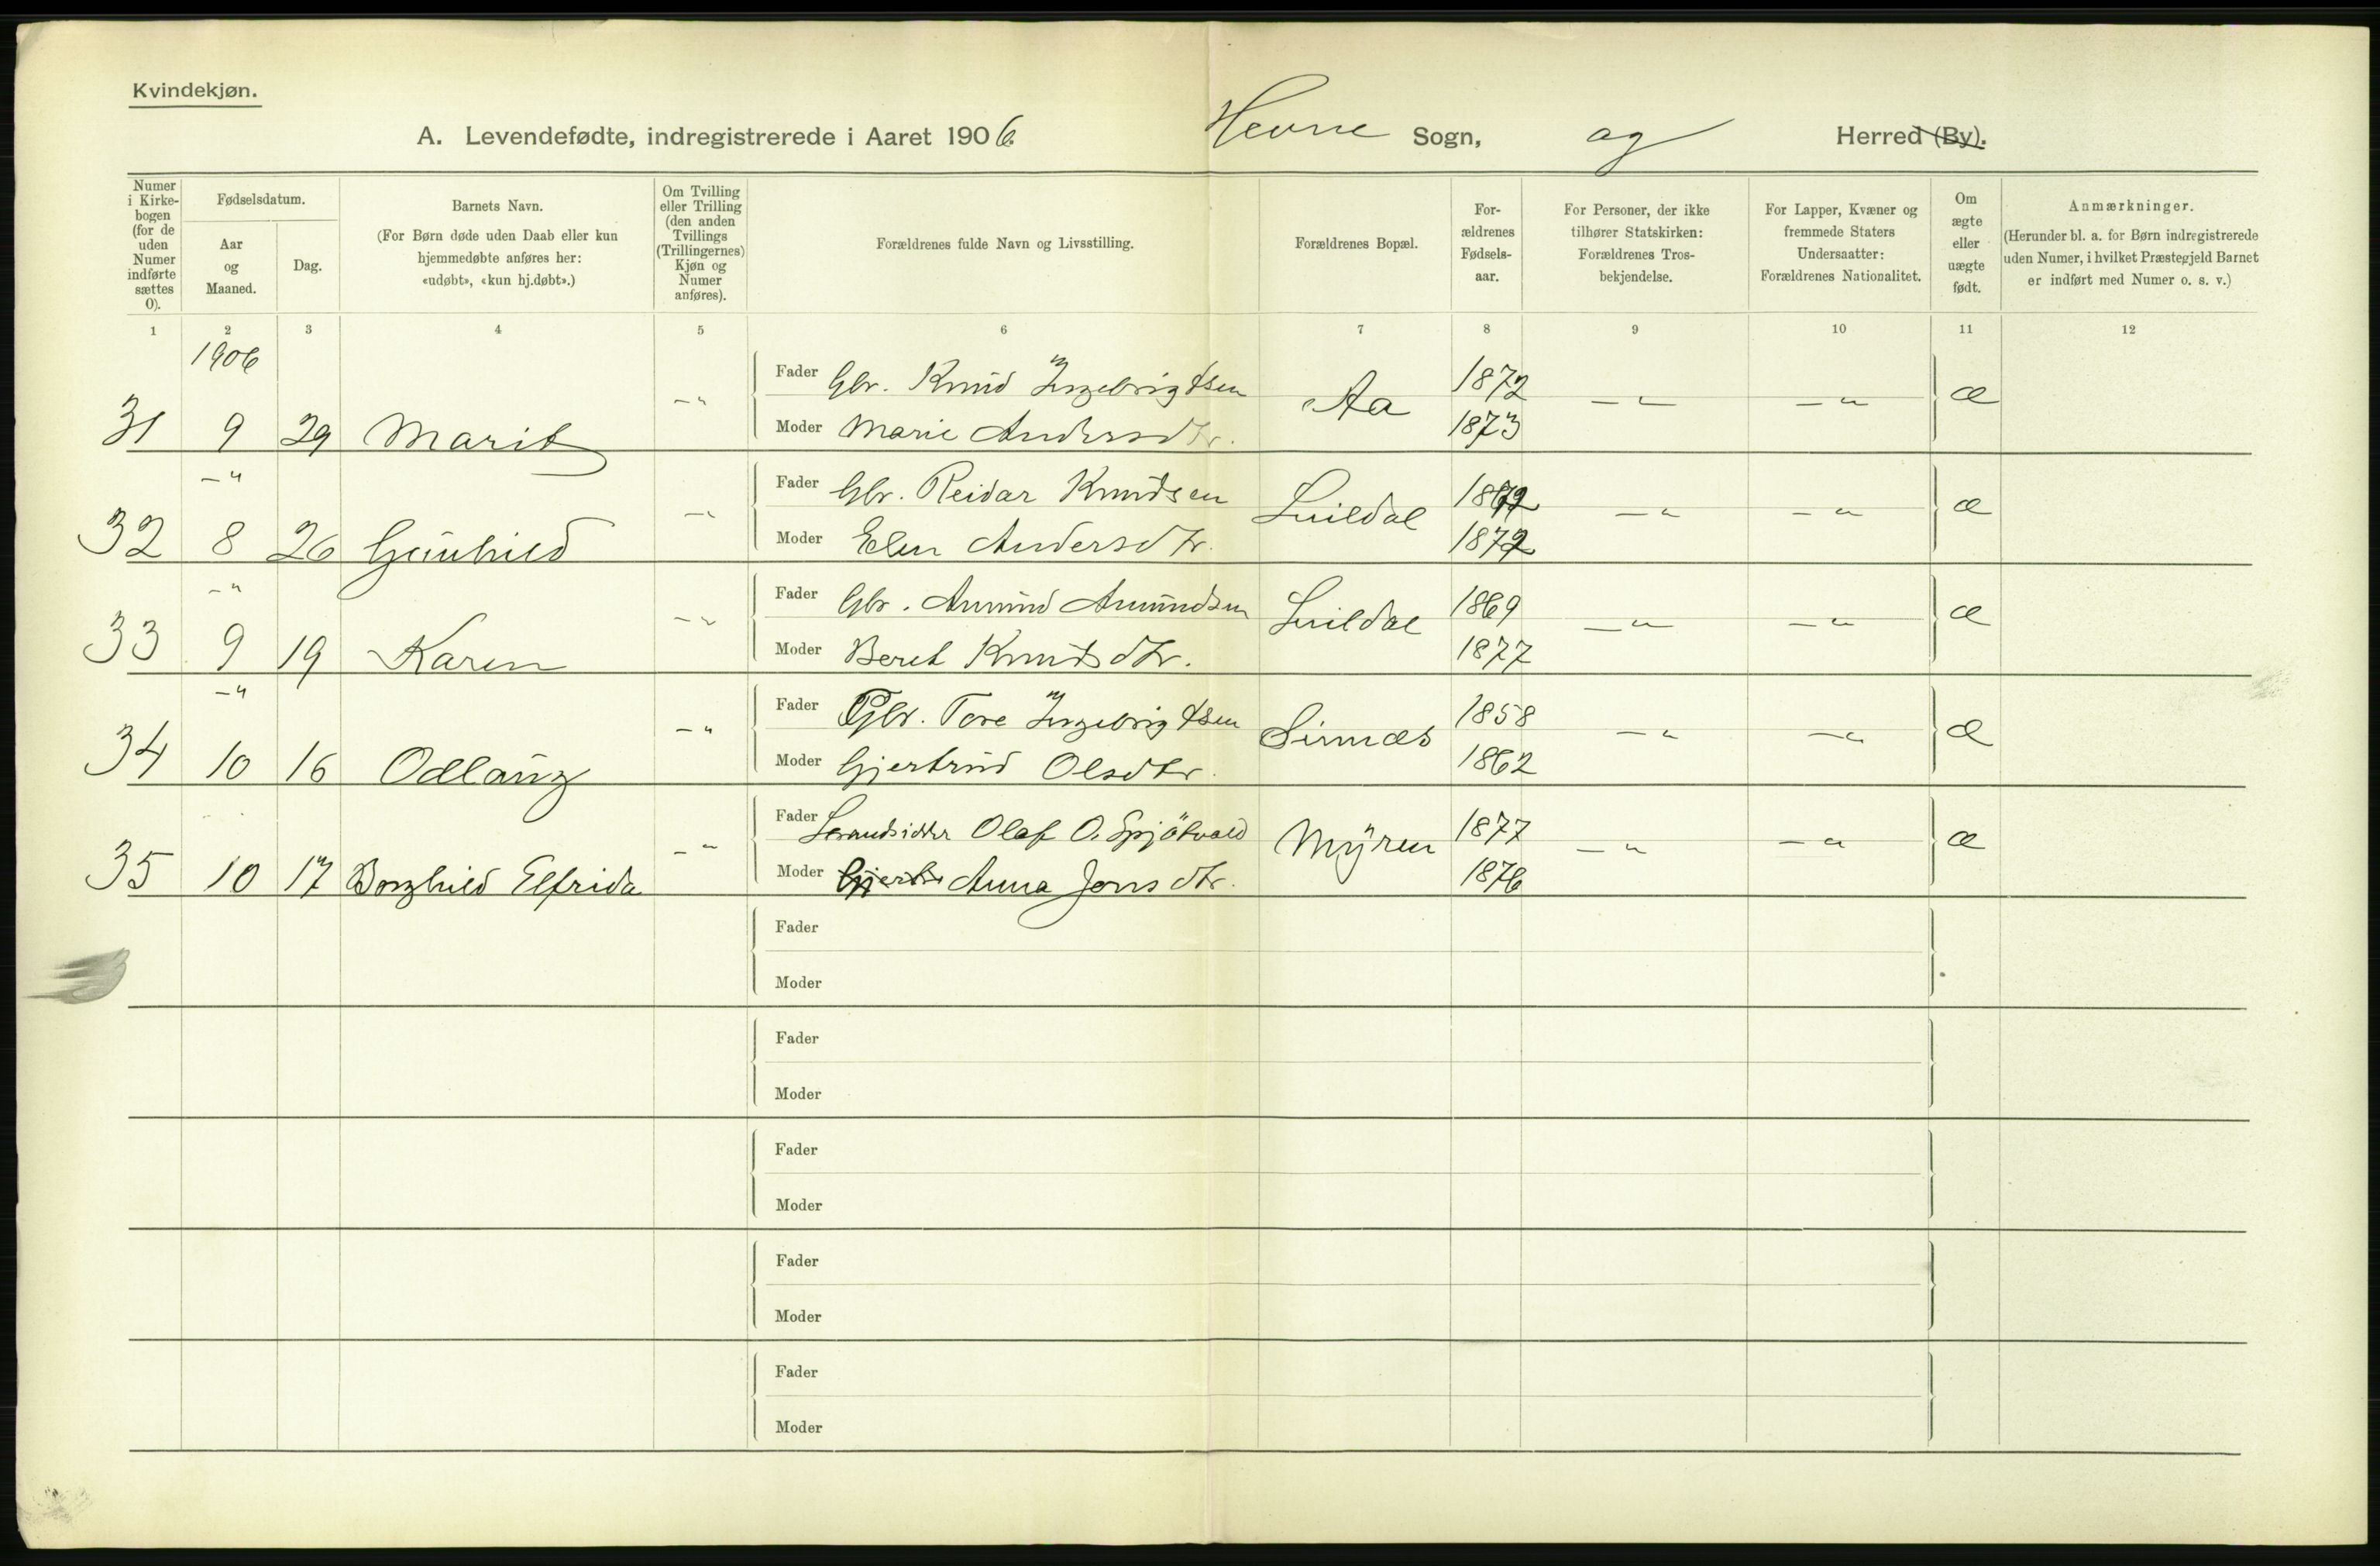 Kvindekjøn.
A. Levendefødte, indregistrerede i Aaret 1906. Hevne Sogn, og Herred (By).
Numer i Kirkebogen (for de uden Numer indførte sættes 0).
Fødselsdatum.
Aar og Maaned.
Dag.
Barnets Navn.
(For Børn døde uden Daab eller kun hjemmedøbte anføres her: «udøbt», «kun hj.døbt».)
Om Tvilling eller Trilling (den anden Tvillings (Trillingernes) Kjøn og Numer anføres).
Forældrenes fulde Navn og Livsstilling.
Forældrenes Bopæl.
For-ældrenes Fødsels-aar.
For Personer, der ikke tilhører Statskirken: Forældrenes Tros-bekjendelse.
For Lapper, Kvæner og fremmede Staters Undersaatter: Forældrenes Nationalitet.
Om ægte eller uægte født.
Anmærkninger.
(Herunder bl. a. for Børn indregistrerede uden Numer, i hvilket Præstegjeld Barnet er indført med Numer o. s. v.)
1 2 3 4 5 6 7 8 9 10 11 12
1906
Fader Gbr. Knud Ingebrigtsen Aa 1872 æ
31 9 29 Marit Moder Marie Andersdtr. 1873
Fader Gbr. Reidar Knudsen 1872 æ
32 8 26 Gunhild Moder Elen Andersdtr. 1872
Fader Gbr. Amund Amundsen 1869 æ
33 9 19 Karen Moder Beret Knutsdtr. 1877
Fader Gbr. Tore Ingebrigtsen Sinnæs 1858 æ
34 10 16 Odlaug Moder Gjertrud Olsdtr. 1862
Fader Strandsidder Olaf O. Spjøtvold Myren 1877 æ
35 10 17 Borghild Elfrida Moder Anna Jonsdtr. 1876
Fader
Moder
Fader
Moder
Fader
Moder
Fader
Moder
Fader
Moder